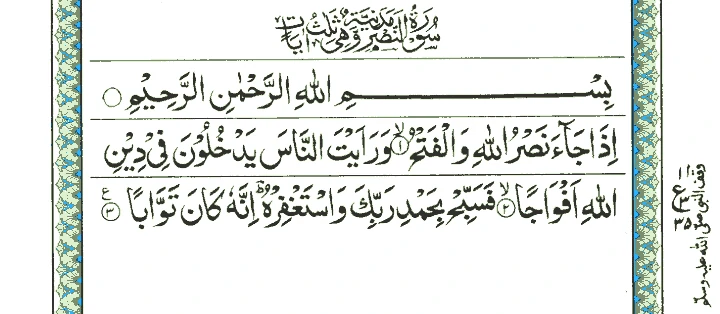 سُوْرَةُ النَّصْرِ مَدَنِيَّةٌ وَّهِيَ ثَلٰثُ اٰيَاتٍ
بِسْمِ اللهِ الرَّحْمٰنِ الرَّحِيْمِ ○
اِذَا جَآءَ نَصْرُ اللهِ وَالْفَتْحُ ۙ﴿۱﴾ وَرَاَيْتَ النَّاسَ يَدْخُلُوْنَ فِيْ دِيْنِ
اللهِ اَفْوَاجًا ۙ﴿۲﴾ فَسَبِّحْ بِحَمْدِ رَبِّكَ وَاسْتَغْفِرْهُ ؕ اِنَّهٗ كَانَ تَوَّابًا ﴿۳﴾ ع
۱
ع ۳
۳۵
وقف النبی صلی اللہ علیہ وسلم